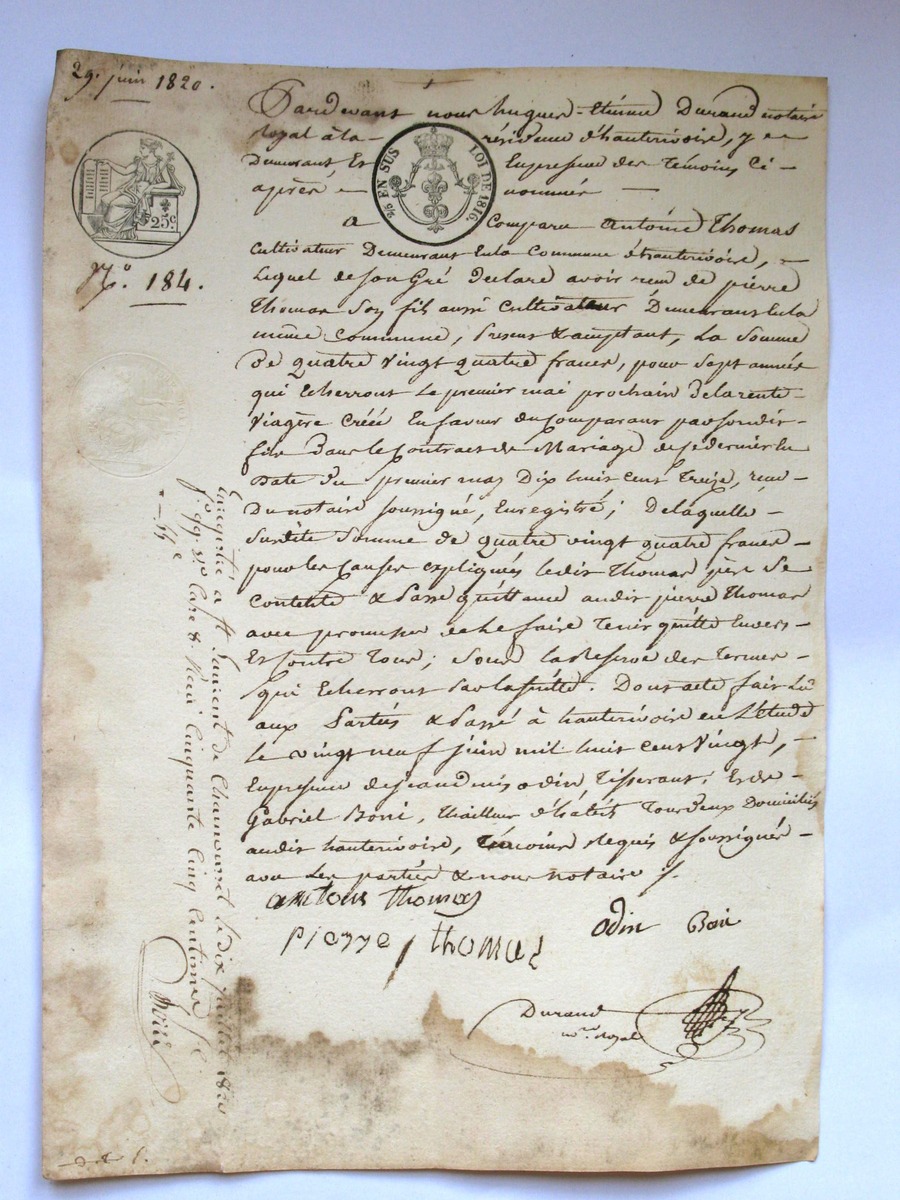 29. juin 1820.
Pardevant nous hugues-Etienne Durand notaire
royal à la résidence d'hauterivoire, y
Demeurant Et En presence des Temoins Ci
après nommés
2/5 EN SUS LOI DE 1816.
25c.
A Comparu antoine Thomas
Cultivateur Demeurant En la Commune d'hauterivoire,
N.o 184.
Lequel de son Gré declare avoir reçu de pierre
Thomas Son fils aussi Cultivateur Demeurant En la
même Commune, Present & acceptant, La Somme
De quatre vingt quatre francs, pour Sept années
qui Echerront Le premier mai prochain De la rente
Viagère Créée En faveur du Comparant par son dit
fils Dans le Contract de Mariage de ce dernier En
Date du premier may Dix huit cent Treize, reçu
Du notaire soussigné, Enregistré; De laquelle
Susdite Somme de quatre vingt quatre francs
pour les Causes expliquées ledit Thomas père Se
Contente & Passe quittance audit pierre Thomas
avec promesse de Le faire Tenir quitte Envers
Et Contre Tous; Sous la Reserve des Termes
qui Echerront Par la suitte. Dont acte fait Lu
aux Parties & Passé à hauterivoire en L'étude
le vingt neuf juin mil huit cent vingt,
En presence de jean denis odin, Tisserant, Et de
Gabriel Boni, Thailleur d'habits Tous deux Domiciliés
audit hauterivoire, Témoins requis & soussignés
avec Les parties & nous notaire
antoine thomas
odin Boni
pierre thomas
Durand
no.re royal
Enregistré a St Laurent de Chamousset le dix juillet 1820
f.o 99 v.o Case 8. Reçu Cinquante Cinq Centimes